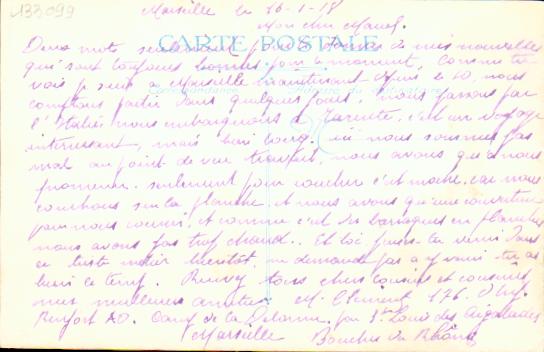 133099
Marseille le 26-1-18
Mon cher Marcel.
CARTE POSTALE
Deux mots seulement pour donner de mes nouvelles
qui sont toujours bonnes pour le moment, comme tu
vois je suis à Marseille maintenant depuis le 10, nous
comptons partir dans quelques jours, nous passons par
l'Italie nous embarquons à Tarente, c'est un voyage
intéressant, mais bien long. ici nous sommes pas
mal au point de vue travail, nous avons qu'à nous
promener. seulement pour coucher c'est moche, car nous
couchons sur la planche et nous avons qu'une couverture
pour nous couvrir, et comme c'est des baraques en planches
nous avons pas trop chaud.. Et toi
ce triste métier bientôt, ne demande pas à y venir tu as
bien le temps. Recevez tous chers cousins et cousines
mes meilleures amitiés M. Clément 176.
Renfort AO. Camp de la Delorme par St Louis les Aygalades
Marseille Bouches du Rhône